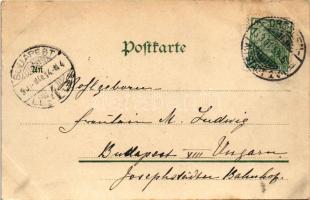 Postkarte
BUDAPEST
An
Hochgeboren
Fräulein M. Ludwig
Budapest VIII Ungarn
Josephstädter Bahnhof.